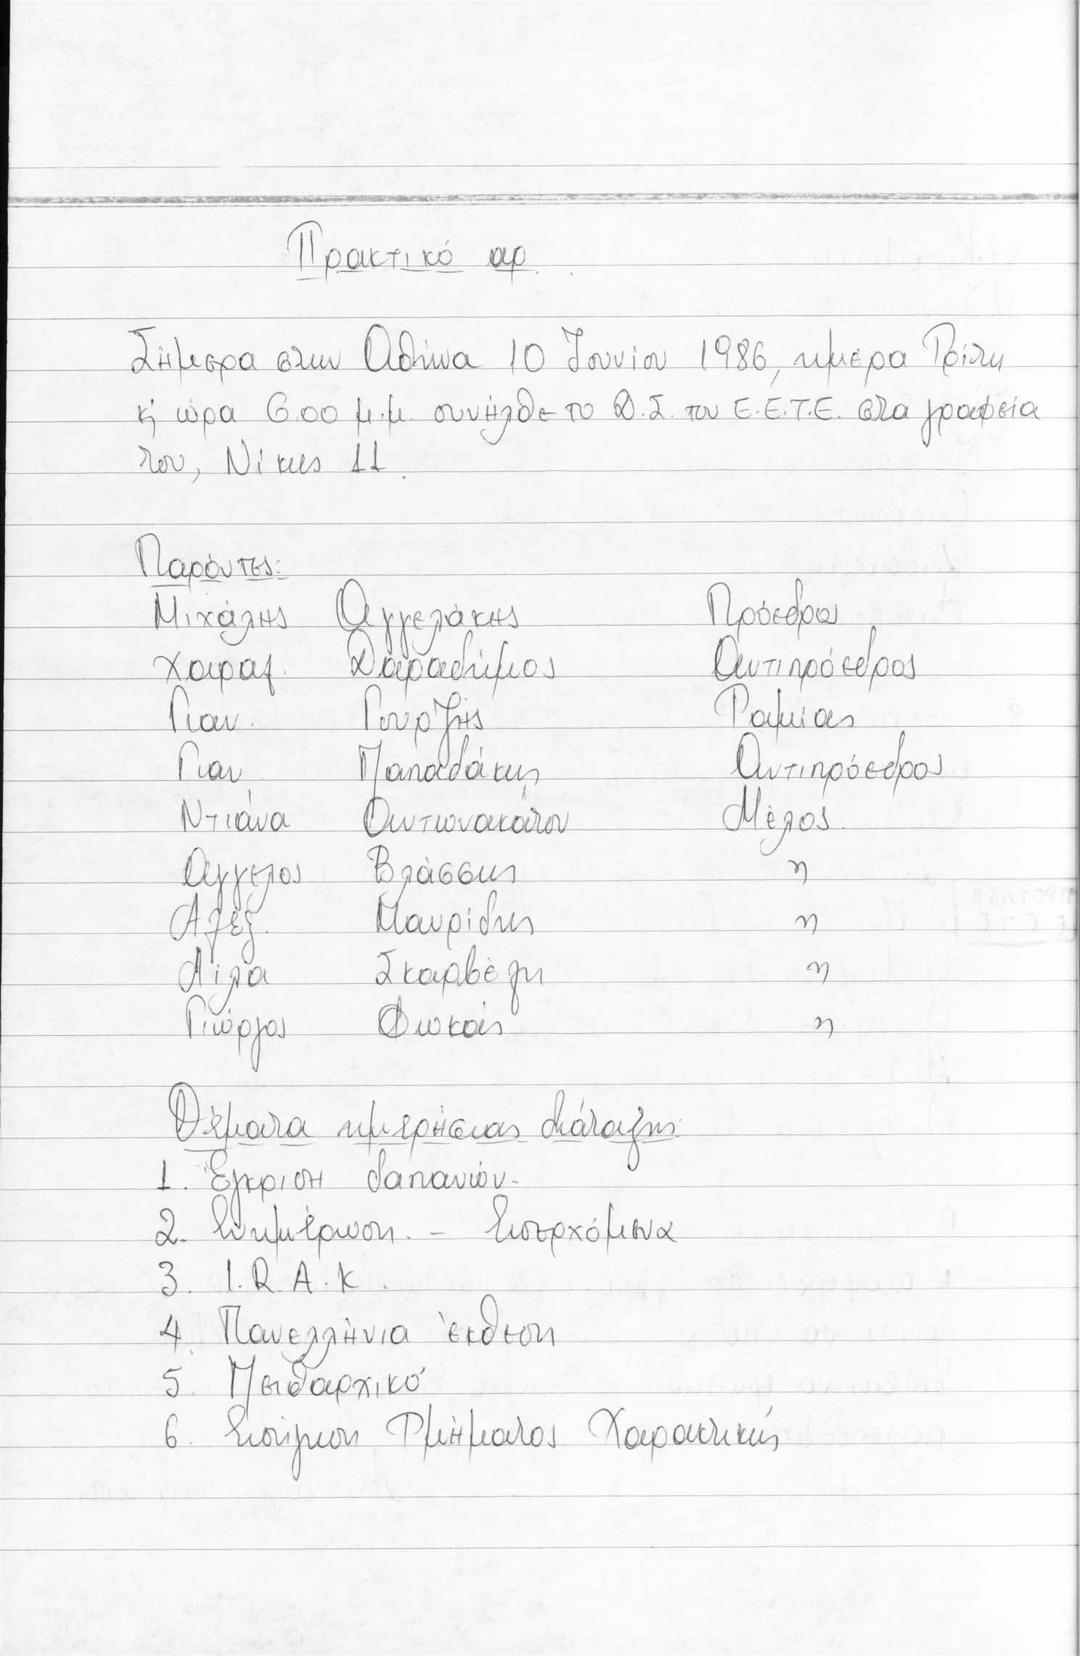 Πρακτικό αρ.
Σήμερα στην Αθήνα 10 Ιουνίου 1986, ημέρα Τρίτη
κ' ώρα 6.00 μ.μ. συνήλθε το Δ.Σ. του Ε.Ε.Τ.Ε. στα γραφεία
του, Νίκης 11.
Παρόντες:
Μιχάλης Αγγελάκης Πρόεδρος
Χαραλ. Δαραδήμος Αντιπρόεδρος
Γιαν. Γουρζής Ταμίας
Γιαν Παπαδάκης Αντιπρόεδρος
Ντιάνα Αντωνακάτου Μέλος.
Αγγελος Βλάσσης η
Αλέξ. Μαυρίδης η
Λίλα Σκαρβέλη η
Γιώργος Φωκάς η
Θέματα ημερήσιας διάταξης:
1. Έγκριση δαπανών.
2. Ενημέρωση. - Εισερχόμενα
3. Ι.Ρ.Α.Κ.
4. Πανελλήνια έκθεση
5. Πειθαρχικό
6. Εισήγηση Τμήματος Χαρακτικής